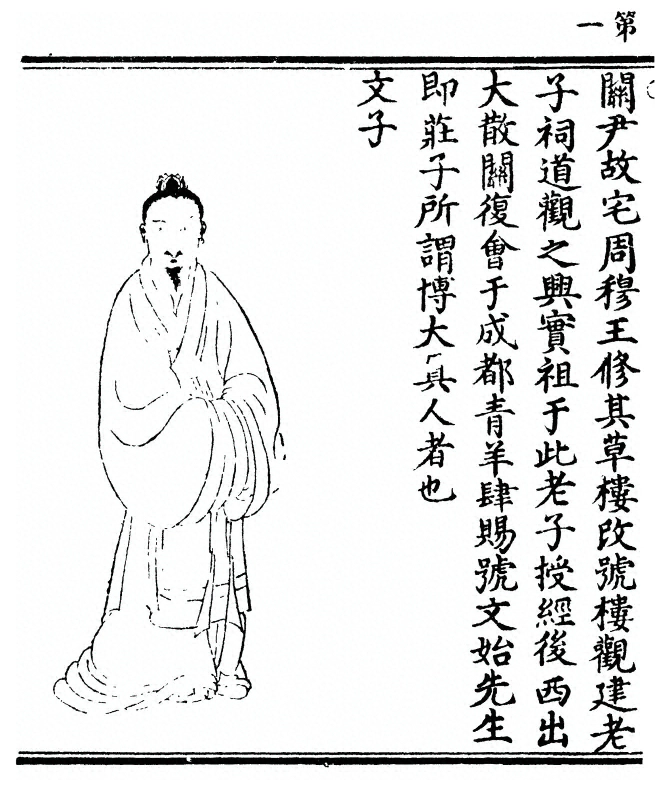 第一
關尹故宅周穆王修其草樓改號樓觀建老
子祠道觀之興實祖于此老子授經後西出
大散關復會于成都青羊肆賜號文始先生
即莊子所謂博大真人者也
文子